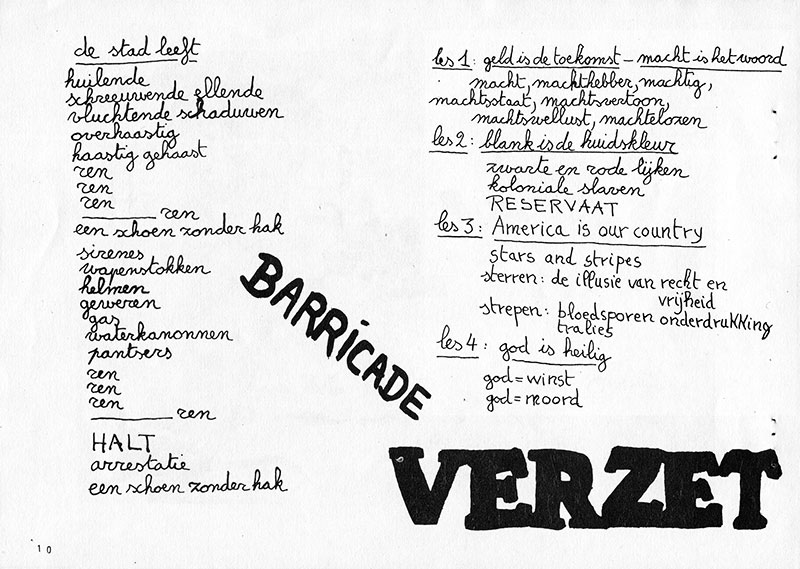 de stad leeft
huilende
schreeuwende ellende
vluchtende schaduwen
overhaastig
haastig gehaast
ren
ren
ren
_______ ren
een schoen zonder hak
sirenes
wapenstokken
helmen
geweren
gas
waterkanonnen
pantsers
ren
ren
ren
_______ ren
HALT
arrestatie
een schoen zonder hak
BARRICADE
les 1: geld is de toekomst – macht is het woord
macht, machthebber, machtig,
machtsstaat, machtsvertoon,
machtswellust, machtelozen
les 2: blank is de huidskleur
zwarte en rode lijken
koloniale slaven
RESERVAAT
les 3: America is our country
stars and stripes
sterren: de illusie van recht en
vrijheid
strepen: bloedsporen onderdrukking
tralies
les 4: god is heilig
god = winst
god = moord
VERZET
10